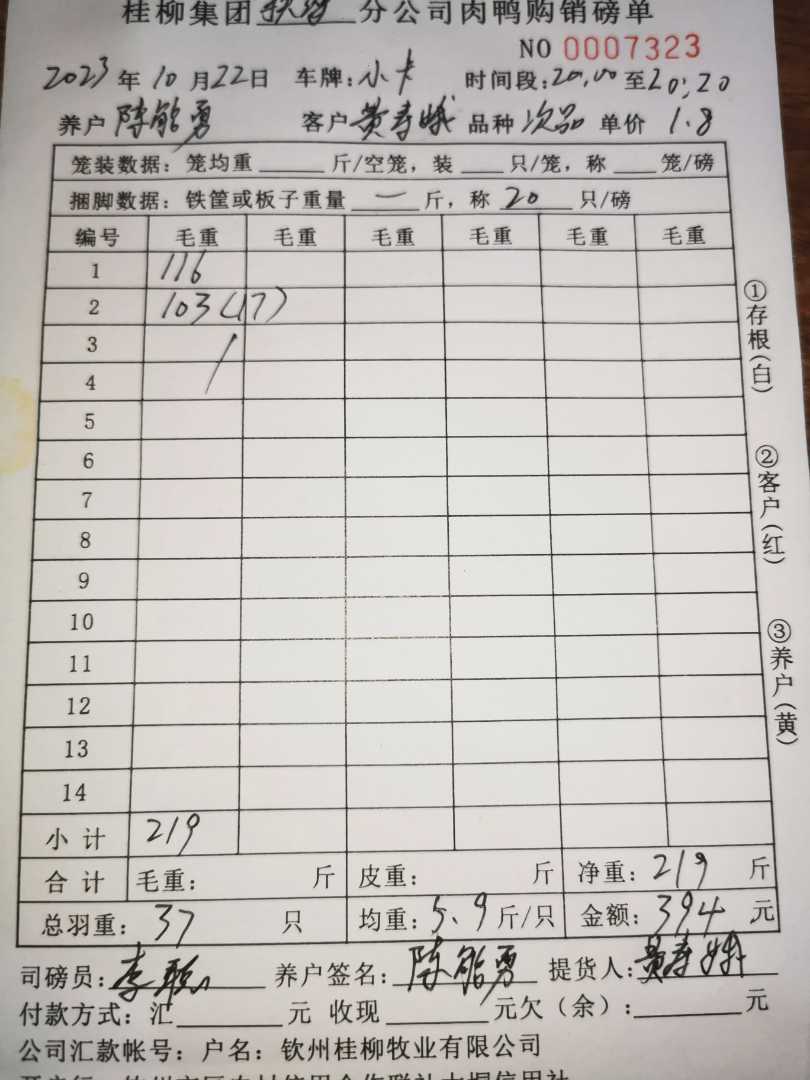 桂柳集团 分公司肉鸭购销磅单
NO 0007323
2023年10月22日 车牌:小卡 时间段:20:00至20:20
养户 陈能勇 客户 黄寿娥 品种 次品 单价 1.8
笼装数据:笼均重______斤/空笼,装____只/笼,称____笼/磅
捆脚数据:铁筐或板子重量 一 斤,称 20 只/磅
编号 毛重 毛重 毛重 毛重 毛重 毛重
1 116
2 103(17)
3 /
4
5
6
7
8
9
10
11
12
13
14
小计 219
合计 毛重: 斤 皮重: 斤 净重:219 斤
总羽重:37 只 均重:5.9斤/只 金额:394 元
司磅员:李 养户签名:陈能勇 提货人:黄寿娥
付款方式:汇______元 收现______元欠(余):______元
公司汇款帐号:户名:钦州桂柳牧业有限公司
①存根(白)
②客户(红)
③养户(黄)